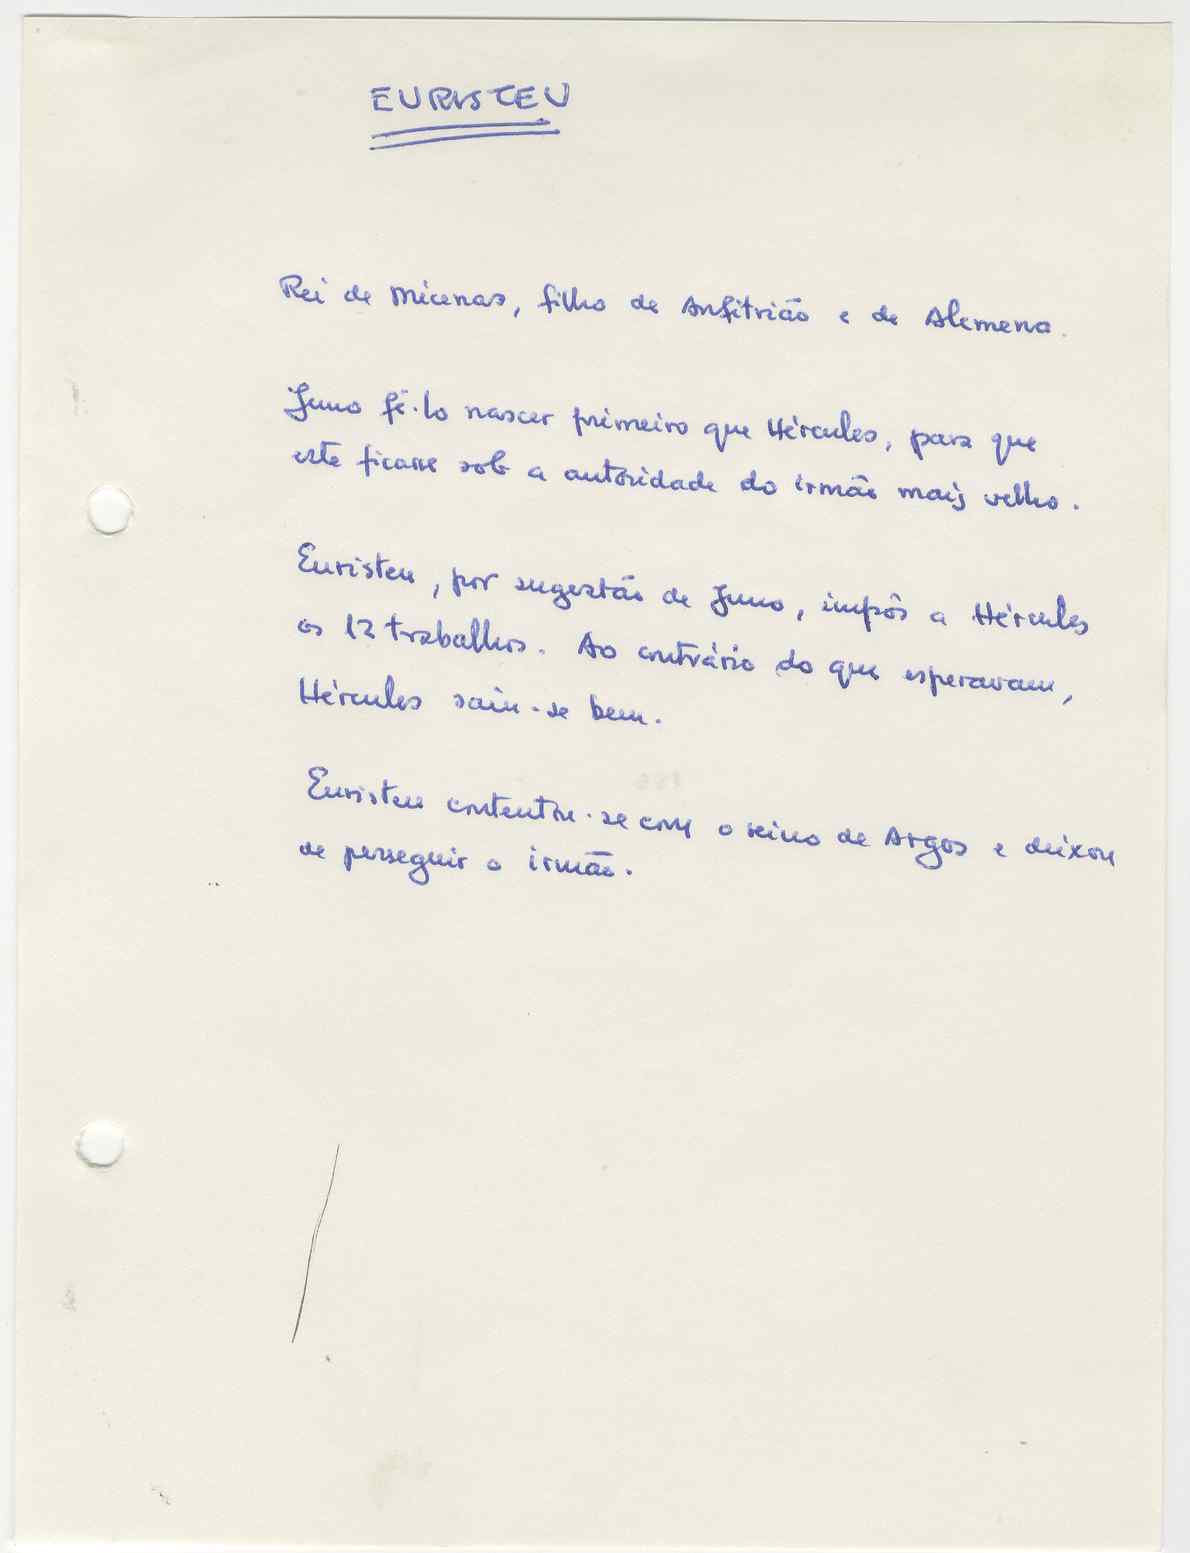 EURISTEU
Rei de Micenas, filho de Anfitrião e de Alcmena.
Juno fê-lo nascer primeiro que Hércules, para que
este ficasse sob a autoridade do irmão mais velho.
Euristeu, por sugestão de Juno, impôs a Hércules
os 12 trabalhos. Ao contrário do que esperavam,
Hércules saiu-se bem.
Euristeu contentou-se com o reino de Argos e deixou
de perseguir o irmão.